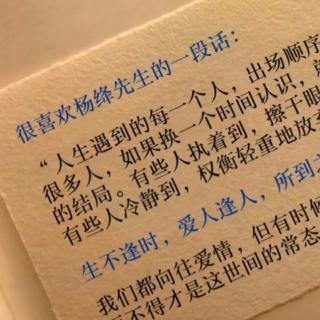 很喜欢杨绛先生的一段话：
“人生遇到的每一个人，出场顺序
很多人，如果换一个时间认识，就
的结局。有些人执着到，擦干眼
有些人冷静到，权衡轻重地放弃
生不逢时，爱人逢人，所到之
我们都向往爱情，但有时候
不得才是这世间的常态